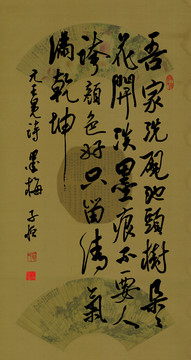 吾家洗硯池頭樹朵々
花開淡墨痕不要人
誇顏色好只留清氣
滿乾坤
元王冕詩 墨梅 子